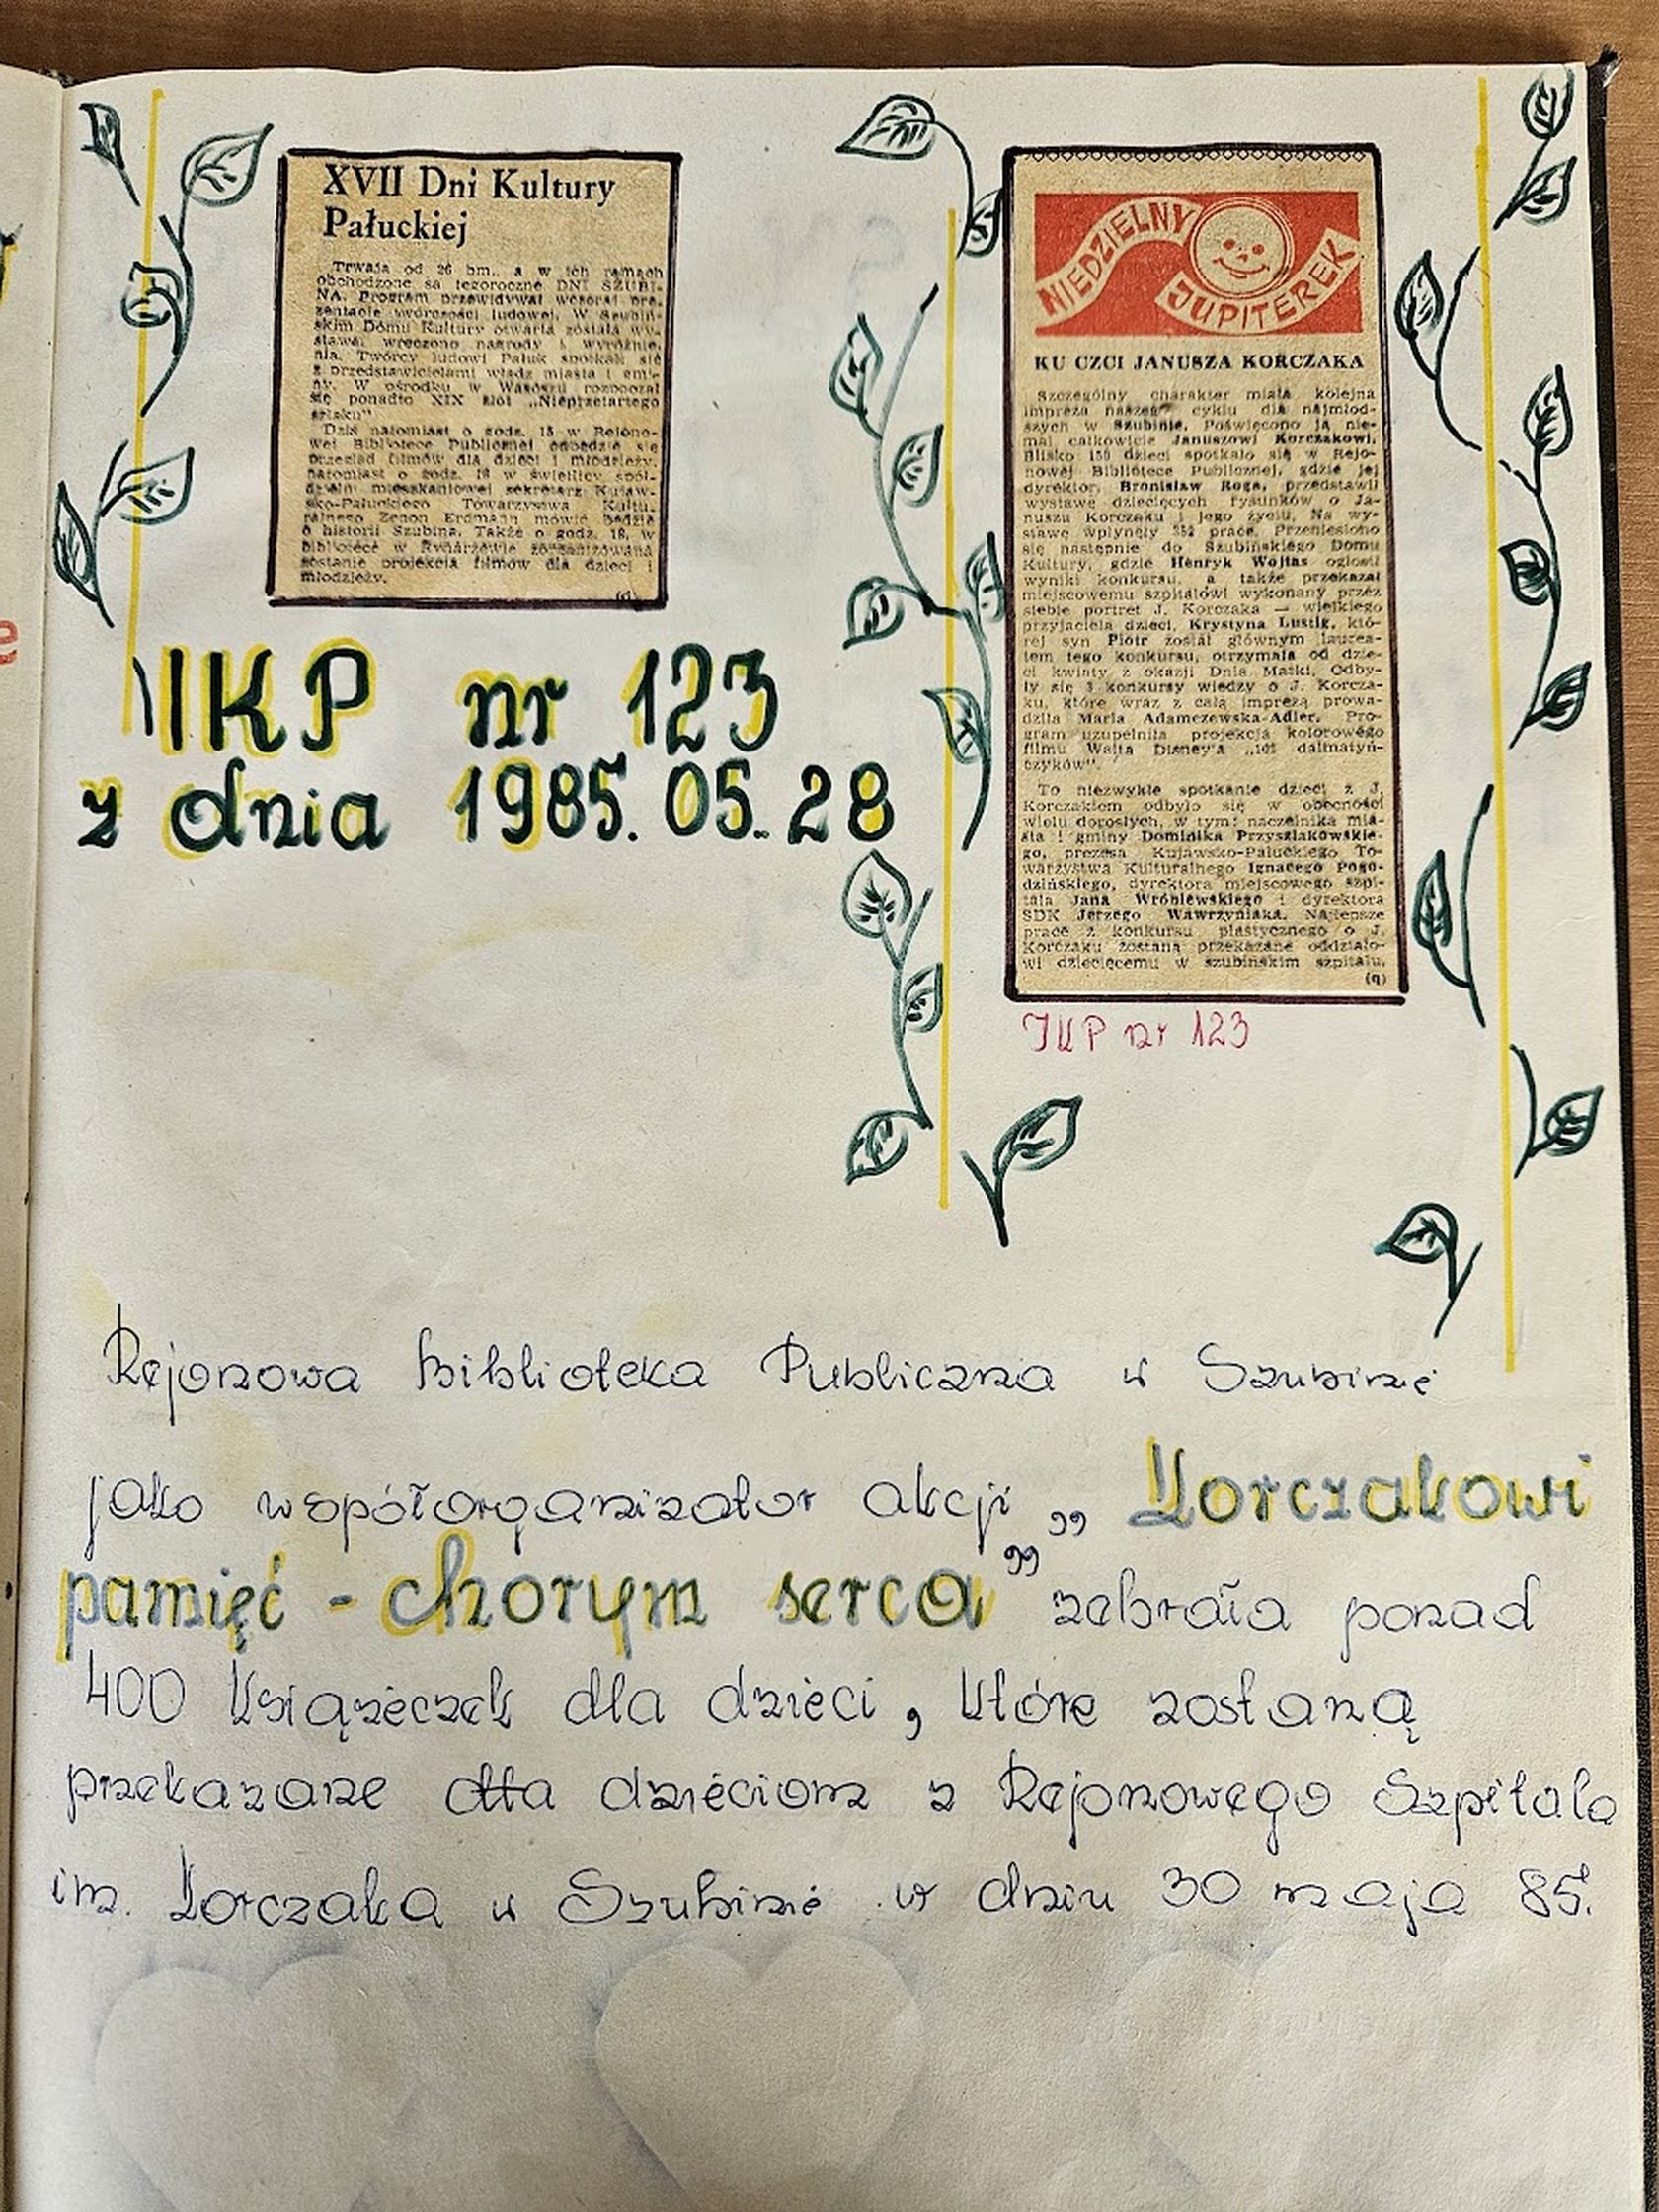 XVII Dni Kultury
Pałuckiej
Trwają od 26 bm., a w ich ramach
obchodzone są tegoroczne DNI SZUBI-
NA. Program przewidywał wczoraj pre-
zentację twórczości ludowej. W Szubiń-
skim Domu Kultury otwarta została wy-
stawa, wręczono nagrody i wyróżnie-
nia. Twórcy ludowi Pałuk spotkali się
z przedstawicielami władz miasta i gmi-
ny. W ośrodku w Wąsoszu rozpoczął
się ponadto XIX zlot „Nieprzetartego
szlaku".
Dziś natomiast o godz. 15 w Rejono-
wej Bibliotece Publicznej odbędzie się
przegląd filmów dla dzieci i młodzieży,
natomiast o godz. 18 w świetlicy spół-
dzielni mieszkaniowej sekretarz Kujaw-
sko-Pałuckiego Towarzystwa Kultu-
ralnego Zenon Erdmann mówić będzie
o historii Szubina. Także o godz. 18, w
bibliotece w Rynarzewie zorganizowana
zostanie projekcja filmów dla dzieci i
młodzieży.
(q)
IKP nr 123
z dnia 1985.05.28
NIEDZIELNY
JUPITEREK
KU CZCI JANUSZA KORCZAKA
Szczególny charakter miała kolejna
impreza naszego cyklu dla najmłod-
szych w Szubinie. Poświęcono ją nie-
mal całkowicie Januszowi Korczakowi.
Blisko 150 dzieci spotkało się w Rejo-
nowej Bibliotece Publicznej, gdzie jej
dyrektor, Bronisław Roga, przedstawił
wystawę dziecięcych rysunków o Ja-
nuszu Korczaku i jego życiu. Na wy-
stawę wpłynęły 352 prace. Przeniesiono
się następnie do Szubińskiego Domu
Kultury, gdzie Henryk Wojtas ogłosił
wyniki konkursu, a także przekazał
miejscowemu szpitalowi wykonany przez
siebie portret J. Korczaka — wielkiego
przyjaciela dzieci. Krystyna Lustig, któ-
rej syn Piotr został głównym laurea-
tem tego konkursu, otrzymała od dzie-
ci kwiaty z okazji Dnia Matki. Odby-
ły się 3 konkursy wiedzy o J. Korcza-
ku, które wraz z całą imprezą prowa-
dziła Maria Adamczewska-Adler. Pro-
gram uzupełniła projekcja kolorowego
filmu Walta Disney'a „101 dalmatyń-
czyków".
To niezwykłe spotkanie dzieci z J.
Korczakiem odbyło się w obecności
wielu dorosłych, w tym: naczelnika mia-
sta i gminy Dominika Przyszlakowskie-
go, prezesa Kujawsko-Pałuckiego To-
warzystwa Kulturalnego Ignacego Pogo-
dzińskiego, dyrektora miejscowego szpi-
tala Jana Wróblewskiego i dyrektora
SDK Jerzego Wawrzyniaka. Najlepsze
prace z konkursu plastycznego o J.
Korczaku zostaną przekazane oddziało-
wi dziecięcemu w szubińskim szpitalu.
(q)
IKP nr 123
Rejonowa Biblioteka Publiczna w Szubinie
jako współorganizator akcji „Korczakowi
pamięć - chorym serca" zebrała ponad
400 książeczek dla dzieci, które zostaną
przekazane dla dzieciom z Rejonowego Szpitala
im. Korczaka w Szubinie w dniu 30 maja 85.